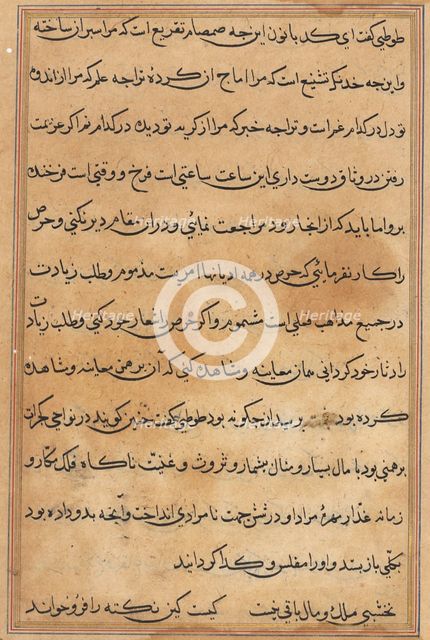 طوطی گفت ای کدبانون این چه صمصام تقریع است که مرا سپر آن ساخته
و این چه خدنک تشنیع است که مرا آماج آن کرده تراچه علم که مرا از اندوه
تو دل در کدام غم است و تراچه خبر که مرا از کریه تو دیده در کدام نم اگر عزیمت
رفتن در وثاق دوست داری این ساعت ساعتی است فرخ و وقتی است فرخنده
برو اما باید که از انجا زود مراجعت نمائی و در ان مقام دیر نکنی و حرص
را کار نفرمائی که حرص در همه ادیانها امریست مذموم و طلب زیادت
در جمیع مذاهب فعلی است مشموم و اگر حرص را شعار خود کنی و طلب زیادت
را دثار خود کردانی همان معاینه و مشاهده کنی که آن برهمن معاینه و مشاهده
کرده بود پرسید آن چکونه بود طوطی گفت چنین کویند در نواحی گجرات
برهمنی بود با مال بسیار و منال بیشمار و ثروت و غنیت ناکاه فلک مکار و
زمانه غدار مهره مراد او در شش جهت نامرادی انداخت و آنچه بدو داده بود
بکلی باز ستد و او را مفلس و کدا کردانید
نخشبی ملک و مال باقی نیست کیست کین نکته را فرو خواند
Heritage
Heritage
Heritage
Heritage
Heritage
Heritage
©